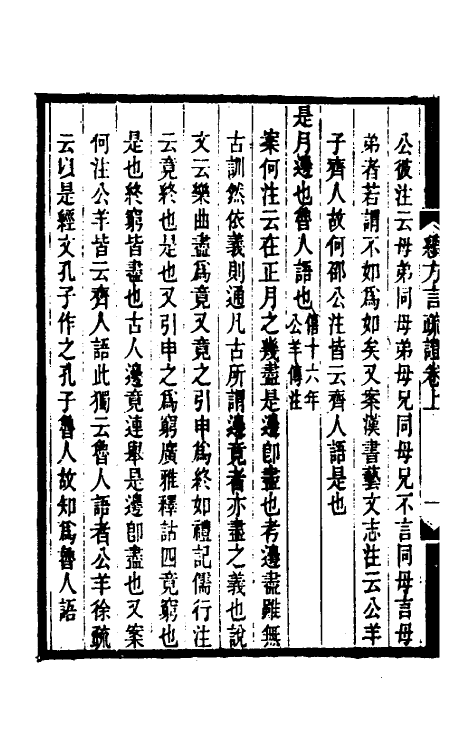 續方言疏證卷上
一
公彼注云母弟同母弟母兄同母兄不言同母言母
弟者若謂不如爲如矣又案漢書藝文志注云公羊
子齊人故何邵公注皆云齊人語是也
是月邊也魯人語也僖十六年公羊傳注
案何注云在正月之幾盡是邊卽盡也考邊盡雖無
古訓然依義則通凡古所謂邊竟者亦盡之義也說
文云樂曲盡爲竟又竟之引申爲終如禮記儒行注
云竟終也是也又引申之爲窮廣雅釋詁四竟窮也
是也終窮皆盡也古人邊竟連舉是邊卽盡也又案
何注公羊皆云齊人語此獨云魯人語者公羊徐疏
云以是經文孔子作之孔子魯人故知爲魯人語